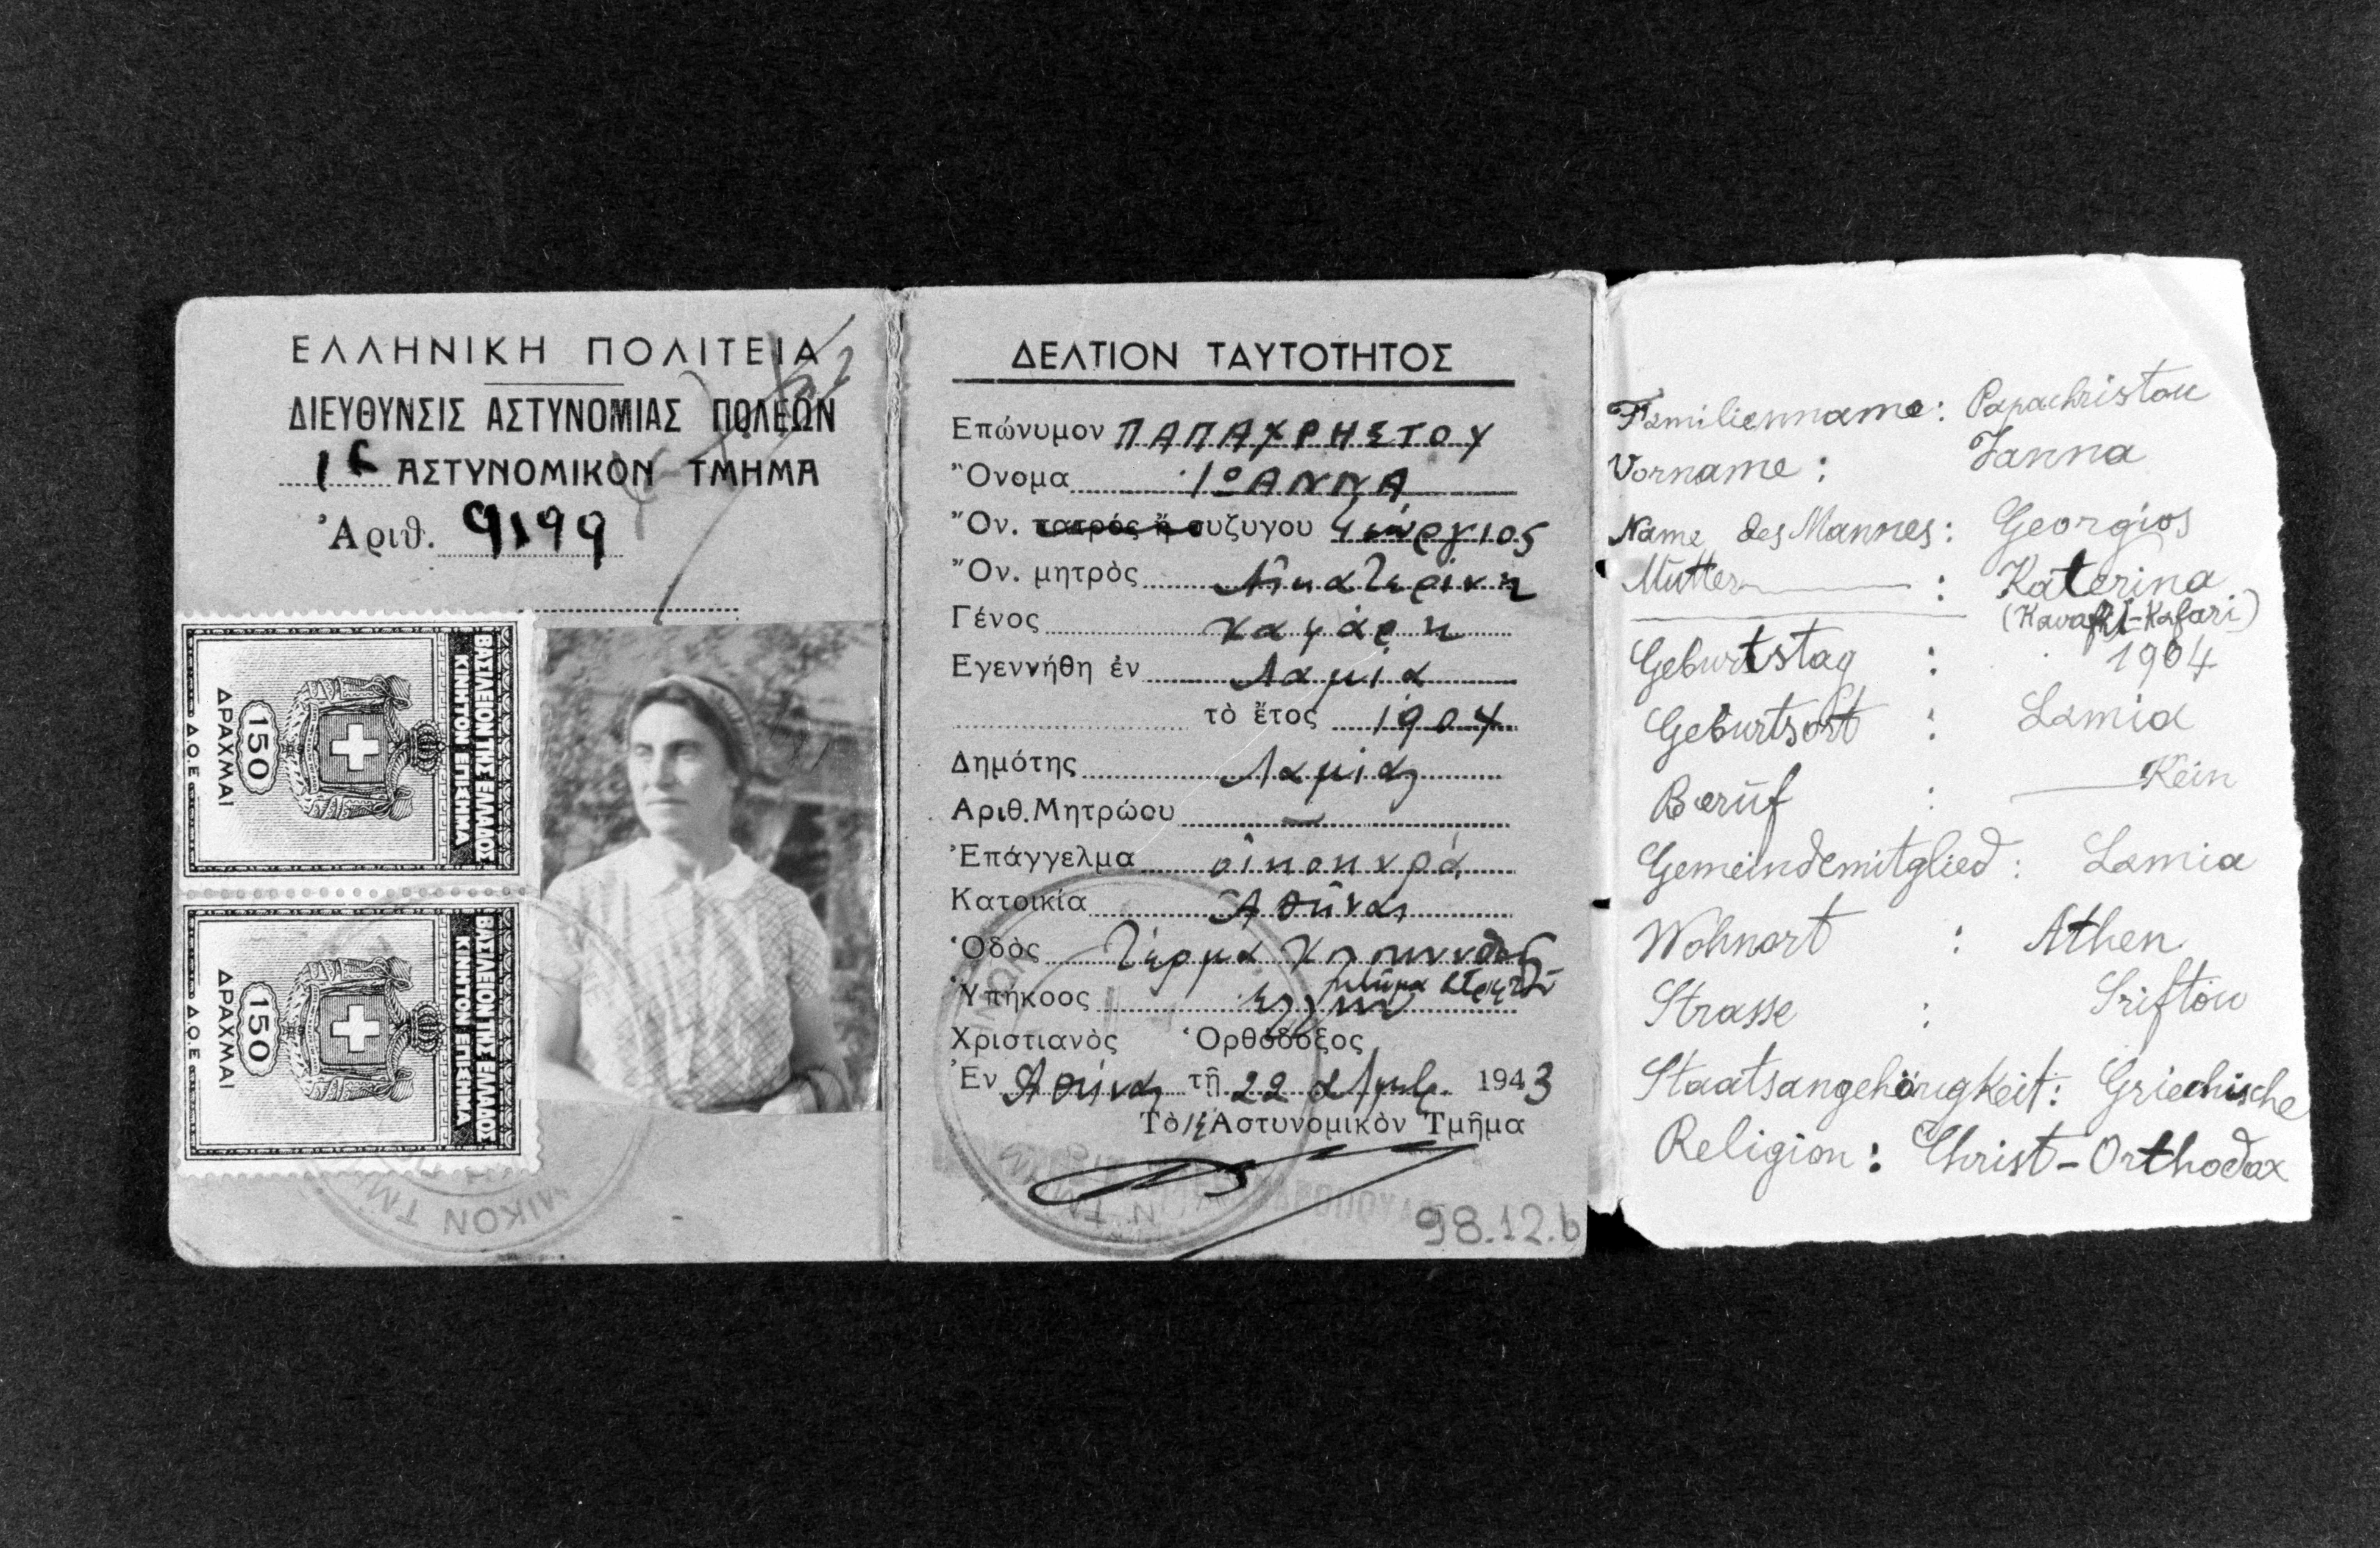 ΕΛΛΗΝΙΚΗ ΠΟΛΙΤΕΙΑ
ΔΙΕΥΘΥΝΣΙΣ ΑΣΤΥΝΟΜΙΑΣ ΠΟΛΕΩΝ
ΑΣΤΥΝΟΜΙΚΟΝ ΤΜΗΜΑ
Ἀριθ. 9199
ΒΑΣΙΛΕΙΟΝ ΤΗΣ ΕΛΛΑΔΟΣ
ΚΙΝΗΤΟΝ ΕΠΙΣΗΜΑ
150
ΔΡΑΧΜΑΙ
Δ.Ο.Ε.
ΒΑΣΙΛΕΙΟΝ ΤΗΣ ΕΛΛΑΔΟΣ
ΚΙΝΗΤΟΝ ΕΠΙΣΗΜΑ
150
ΔΡΑΧΜΑΙ
Δ.Ο.Ε.
ΜΙΚΟΝ ΤΜ
ΔΕΛΤΙΟΝ ΤΑΥΤΟΤΗΤΟΣ
Επώνυμον ΠΑΠΑΧΡΗΣΤΟΥ
Ὄνομα ΙΩΑΝΝΑ
Ὄν. πατρός ἢ συζύγου Γεώργιος
Ὄν. μητρὸς Αἰκατερίνη
Γένος Καφάρη
Εγεννήθη ἐν Λαμία
τὸ ἔτος 1904
Δημότης Λαμίας
Αριθ. Μητρώου —
Ἐπάγγελμα οἰκοκυρά
Κατοικία Ἀθῆναι
Ὁδὸς Τέρμα
Ὑπήκοος
Χριστιανὸς Ὀρθόδοξος
Ἐν Ἀθήναις τῇ 22 1943
Τὸ Αστυνομικὸν Τμῆμα
98.12.b
Familienname: Papachristou
Vorname: Janna
Name des Mannes: Georgios
Mutter : Katerina
(Kavafi-Kafari)
Geburtstag : 1904
Geburtsort : Lamia
Beruf : Kein
Gemeindemitglied : Lamia
Wohnort : Athen
Strasse : Sriftou
Staatsangehörigkeit: Griechische
Religion: Christ-Orthodox